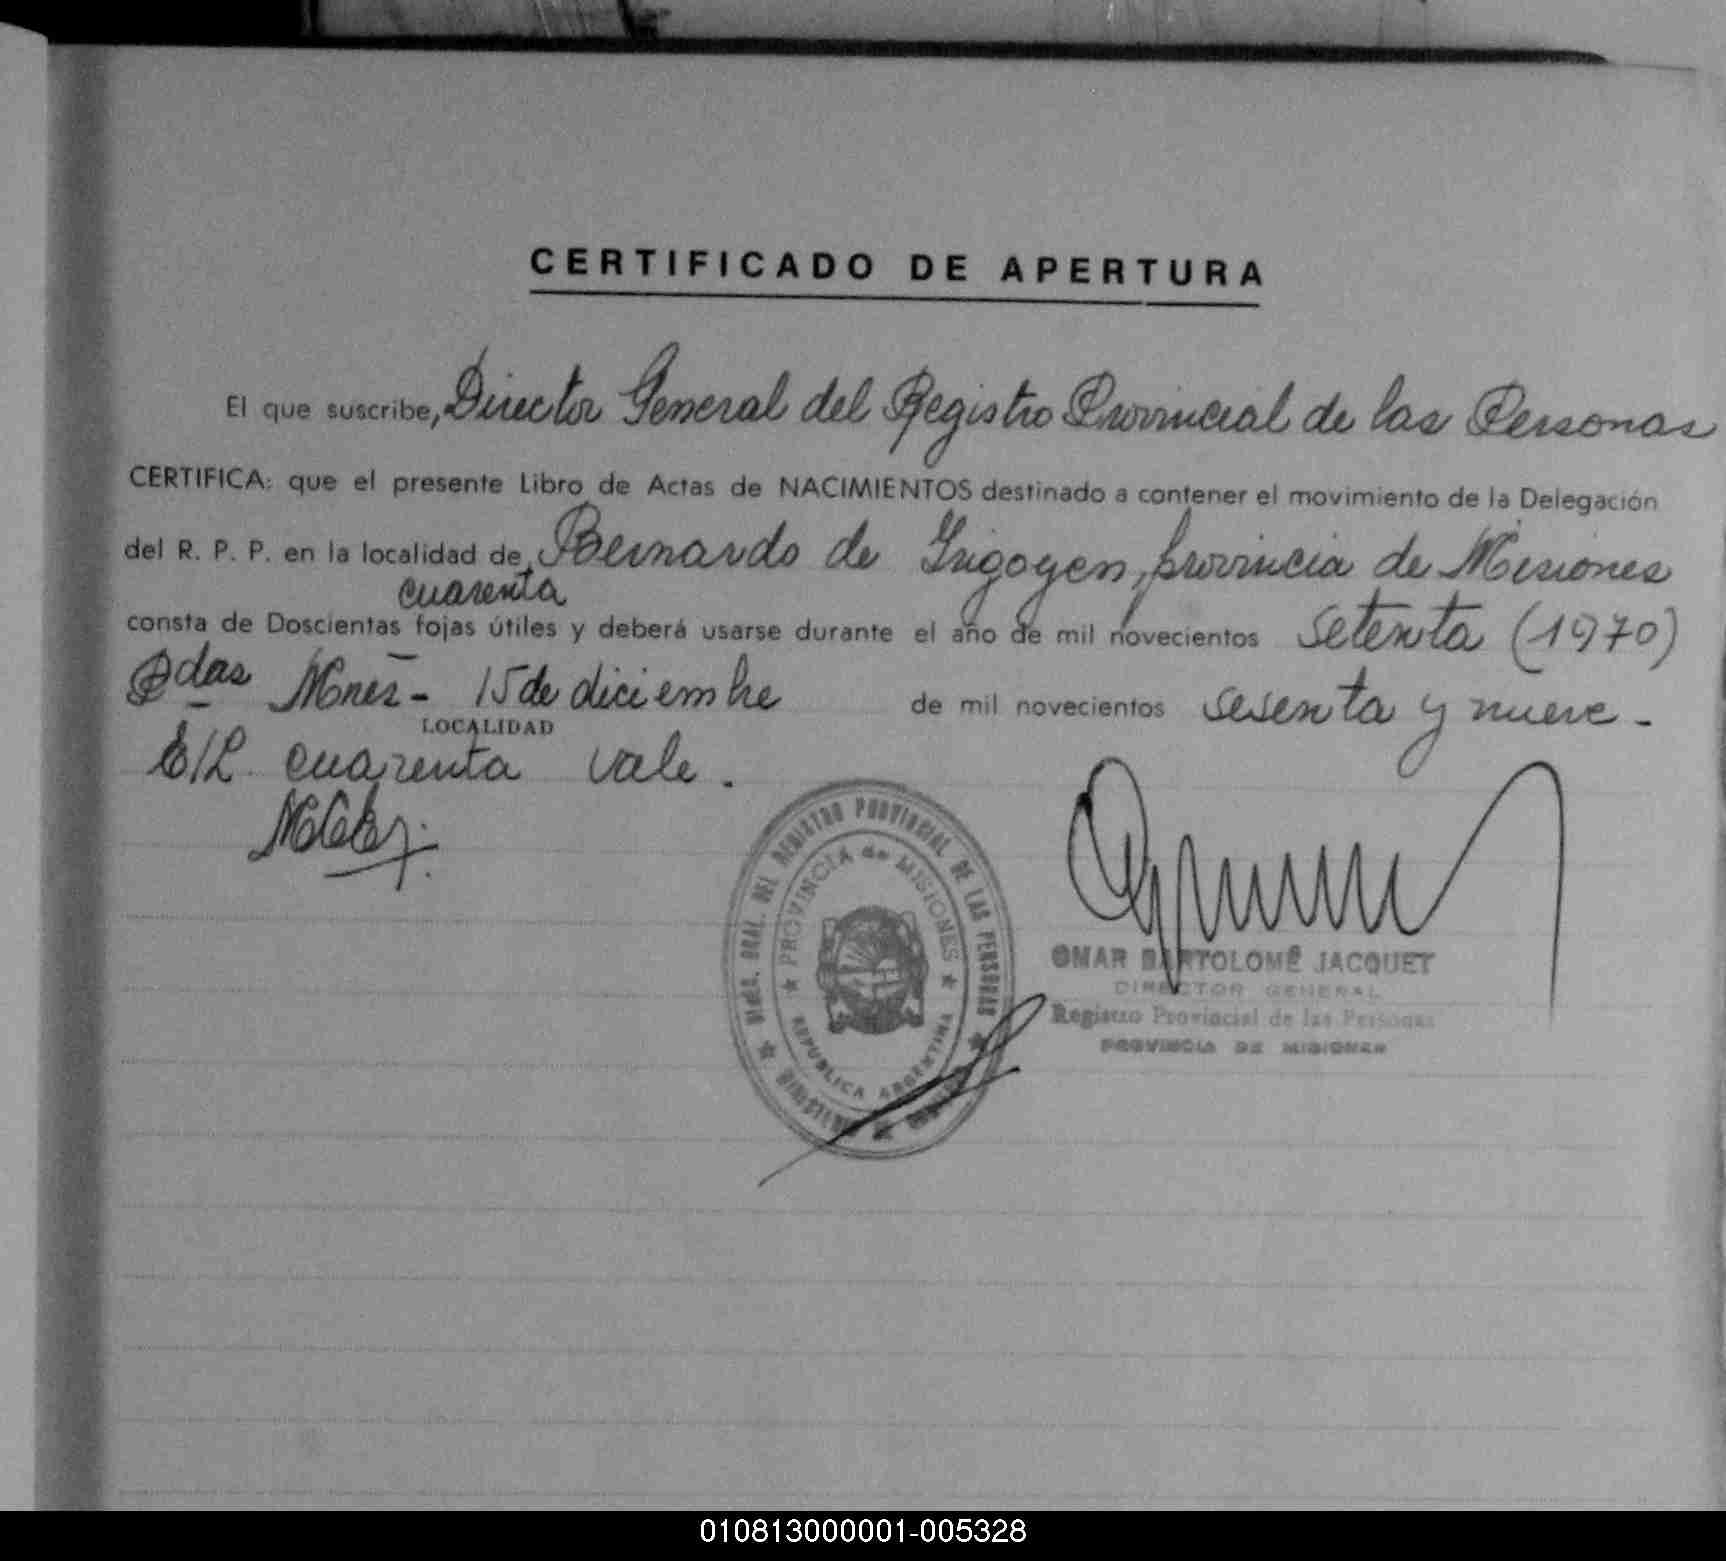 CERTIFICADO DE APERTURA
El que suscribe, Director General del Registro Provincial de las Personas
CERTIFICA: que el presente Libro de Actas de NACIMIENTOS destinado a contener el movimiento de la Delegación
del R. P. P. en la localidad de Bernardo de Irigoyen, provincia de Misiones
cuarenta
consta de Doscientas fojas útiles y deberá usarse durante el año de mil novecientos setenta (1970)
Pdas Mnes - 15 de diciembre de mil novecientos sesenta y nueve -
LOCALIDAD
E/L cuarenta vale.
DEL REGISTRO PROVINCIAL DE LAS PERSONAS
PROVINCIA de MISIONES
REPUBLICA ARGENTINA
OMAR BARTOLOMÉ JACQUET
DIRECTOR GENERAL
Registro Provincial de las Personas
PROVINCIA DE MISIONES
010813000001-005328